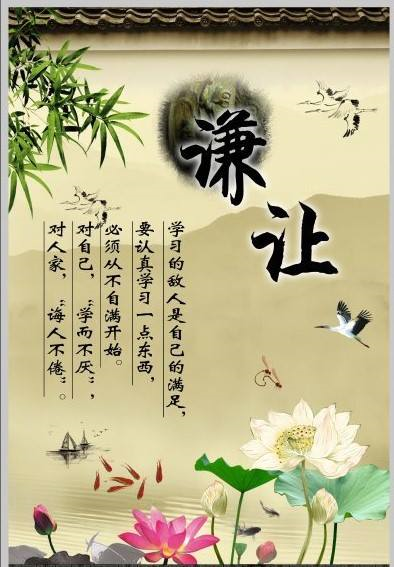 谦让
学习的敌人是自己的满足，
要认真学习一点东西，
必须从不自满开始。
对自己，“学而不厌”，
对人家，“诲人不倦”。